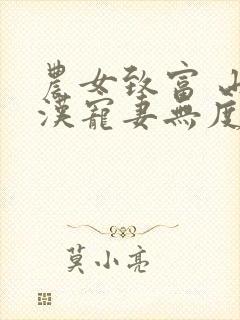 農女致富 山
漢寵妻無度
莫小亮